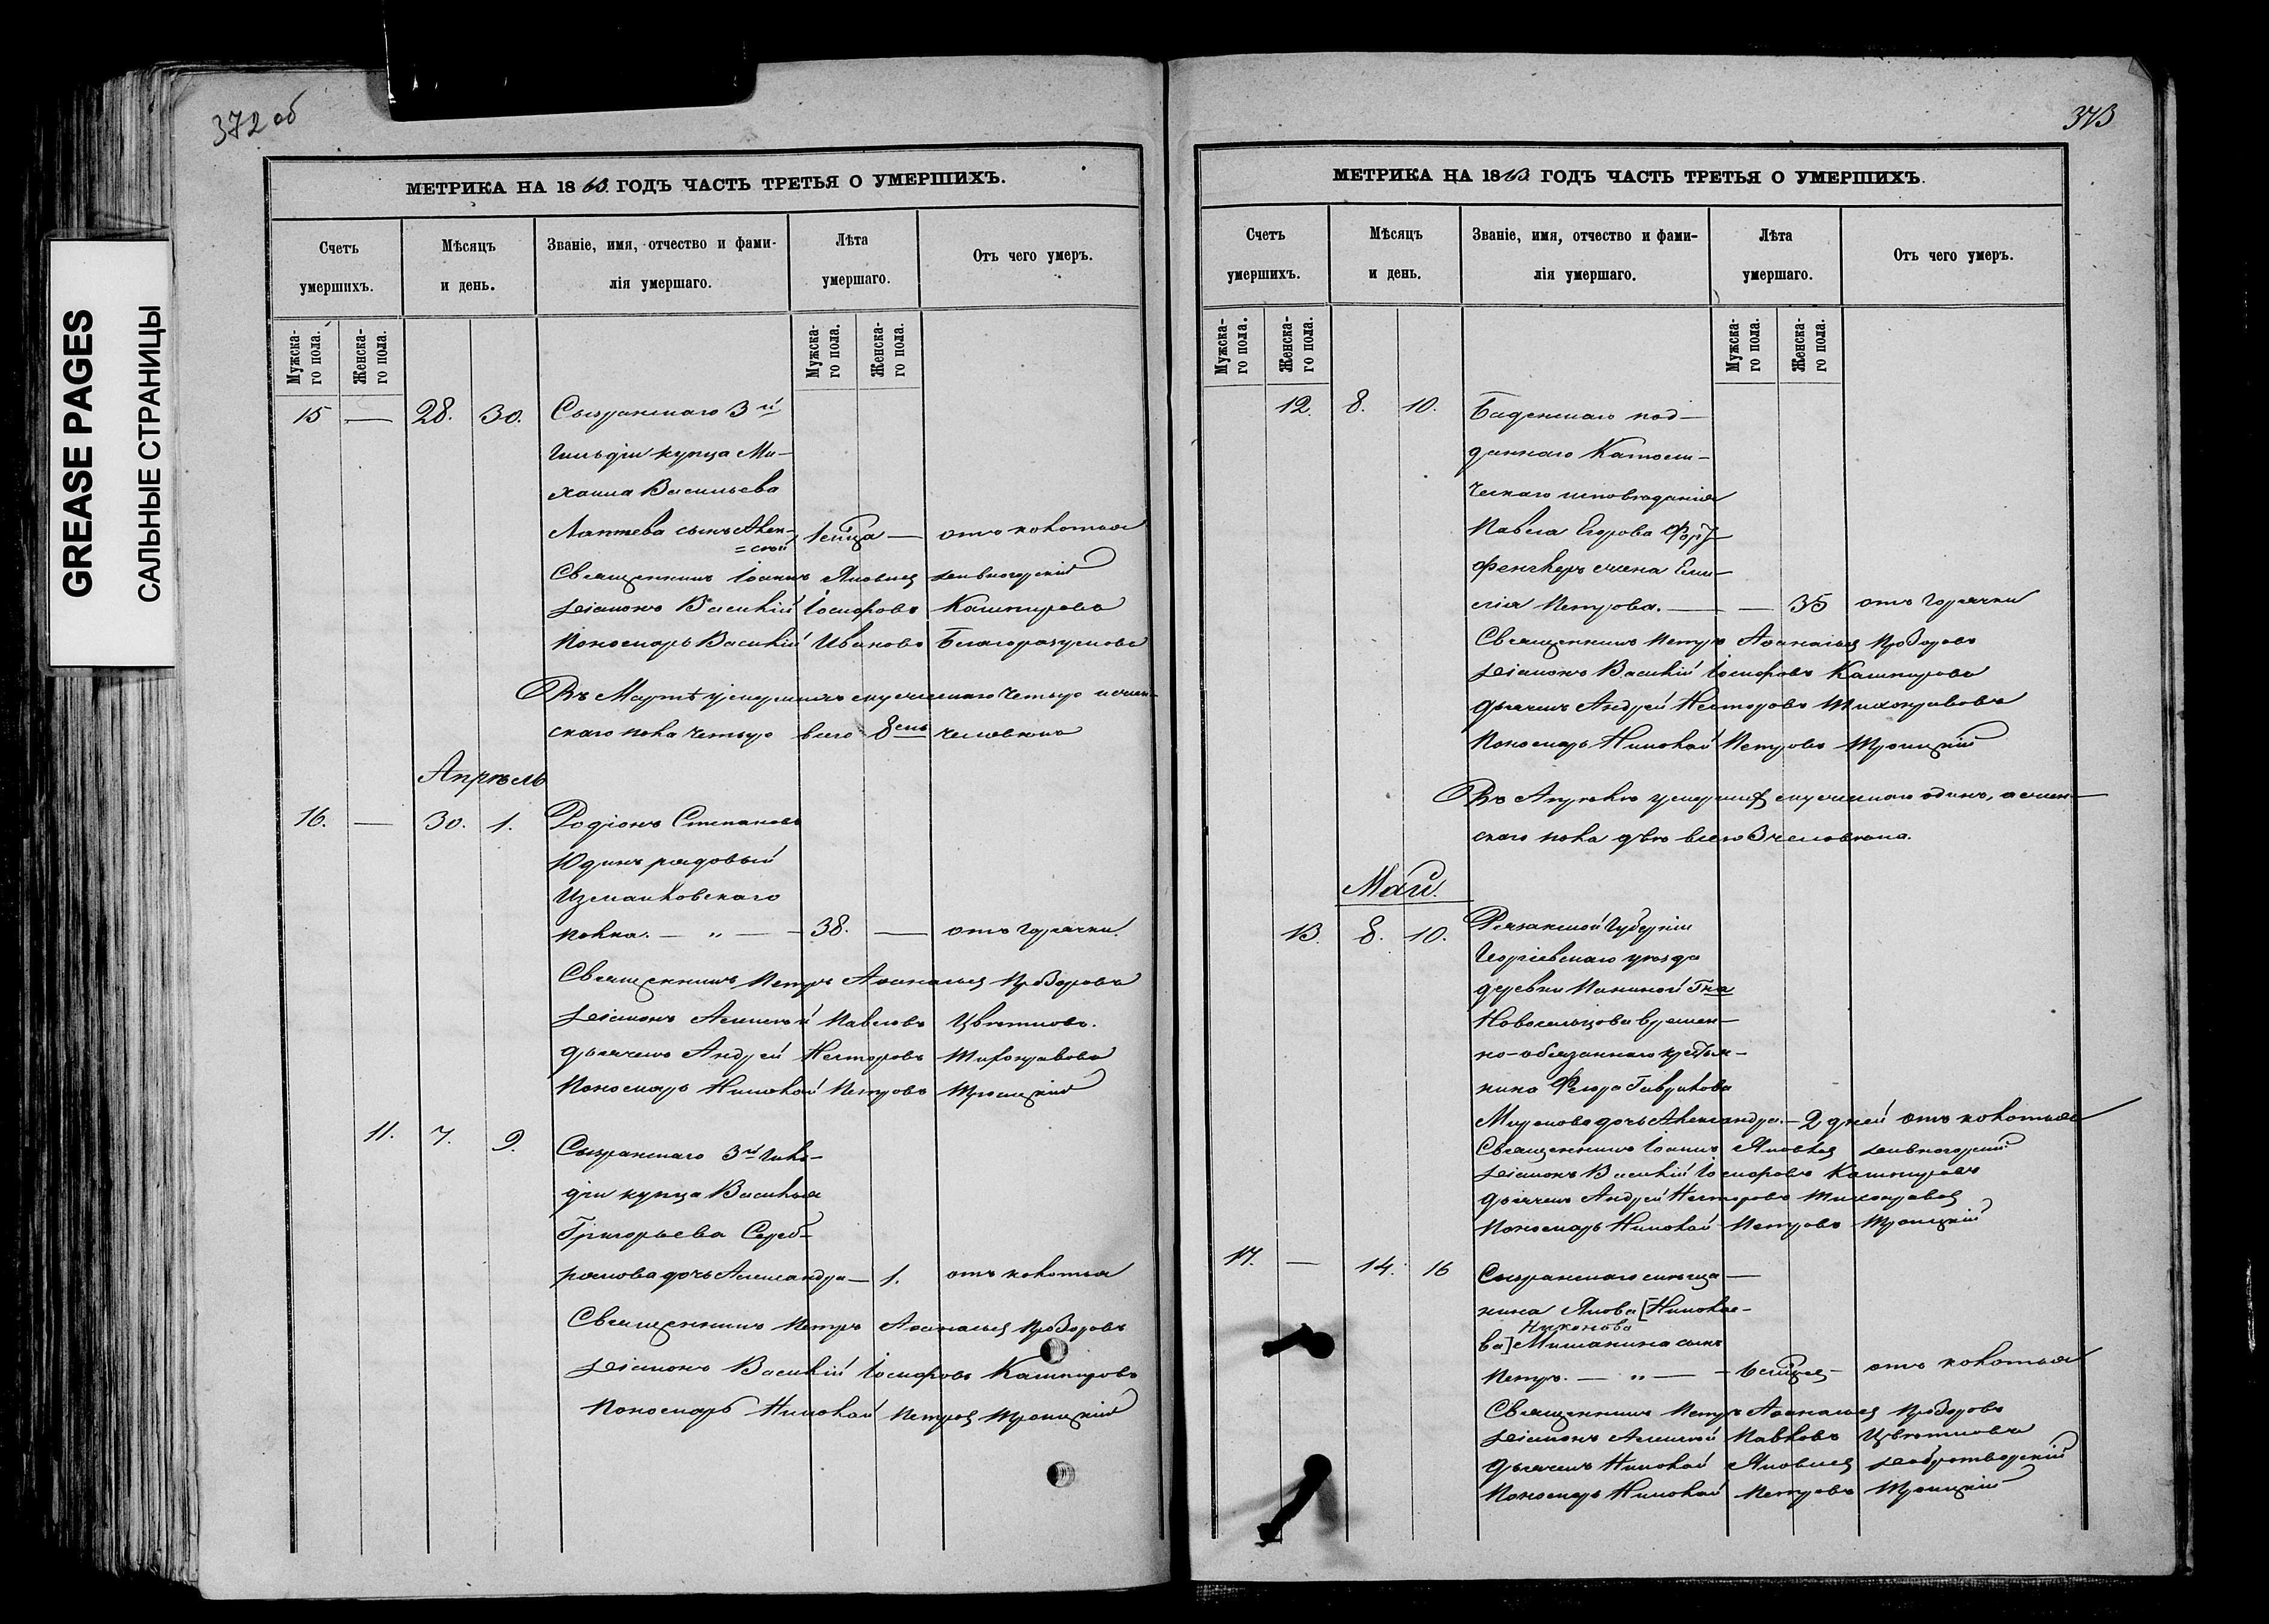 GREASE PAGES
САЛЬНЫЕ СТРАНИЦЫ
372 об
МЕТРИКА НА 1863 ГОДЪ ЧАСТЬ ТРЕТЬЯ О УМЕРШИХЪ.
Счетъ умершихъ.
Мѣсяцъ и день.
Званіе, имя, отчество и фами-
лія умершаго.
Лѣта умершаго.
Отъ чего умеръ.
Мужска-
го пола.
Женска-
го пола.
Мужска-
го пола.
Женска-
го пола.
15 — 28. 30. Сызранскаго 3й
Гильдіи купца Ми-
хаила Васильева
Лаптева сынъ Алек-
=сѣй — отъ колотья
Священникъ Іоаннъ Яковлев
Діаконъ Василій Іосифовъ Кашпировъ
Пономарь Василій Ивановъ Благоразумовъ
Въ Мартѣ умершихъ мужескаго четыре и жен-
скаго пола четыре всего 8емь человѣкъ
Апрѣль
16. — 30. 1. Родіонъ Степановъ
Юдинъ рядовый
Измаиловскаго
полка. — „ — 38. — отъ горячки.
Священникъ Петръ Аѳанасьев Прозоровъ
Діаконъ Алексѣй Павловъ Цвѣтковъ.
Дьячекъ Андрей Несторовъ Тихонравовъ
Пономарь Николай Петровъ Троицкій
11. 7. 9. Сызранскаго 3й Гиль-
діи купца Василья
Григорьева Сереб-
рякова дочь Александра — 1. отъ колотья
Священникъ Петръ Аѳанасьев Прозоровъ
Діаконъ Василій Іосифовъ Кашпировъ
Пономарь Николай Петров Троицкій
373
МЕТРИКА НА 1863 ГОДЪ ЧАСТЬ ТРЕТЬЯ О УМЕРШИХЪ.
Счетъ умершихъ.
Мѣсяцъ и день.
Званіе, имя, отчество и фами-
лія умершаго.
Лѣта умершаго.
Отъ чего умеръ.
Мужска-
го пола.
Женска-
го пола.
Мужска-
го пола.
Женска-
го пола.
12. 8. 10. Баденскаго под-
даннаго Католи-
ческаго исповѣданія
Павла Егорова
жена Еми-
лія Петрова. — — 35 отъ горячки
Священникъ Петръ Аѳанасьев Прозоровъ
Діаконъ Василій Іосифовъ Кашпировъ
Дьячекъ Андрей Несторовъ Тихонравовъ
Пономарь Николай Петровъ Троицкій
Въ Апрѣлѣ умершихъ мужескаго одинъ, а жен-
скаго пола двѣ всего 3 человѣка.
Май.
13. 8. 10. Рязанской Губерніи
уѣзда
деревни Паниной Гна
Новосильцова времен-
но-обязаннаго крестья-
нина Гаврилова
Миронова дочь Александра. — 2 дней отъ колотья
Священникъ Іоаннъ Яковлев
Діаконъ Василій Іосифовъ Кашпировъ
Дьячекъ Андрей Несторовъ Тихонравов
Пономарь Николай Петровъ Троицкій
17. — 14. 16 Сызранскаго мѣща-
нина Якова [Николае-
Никонова
ва] Мишанина сынъ
Петръ. — „ — отъ колотья
Священникъ Петръ Аѳанасьев Прозоровъ
Діаконъ Алексѣй Павловъ Цвѣтковъ
Дьячекъ Николай Яковлев Добротворскій
Пономарь Николай Петровъ Троицкій